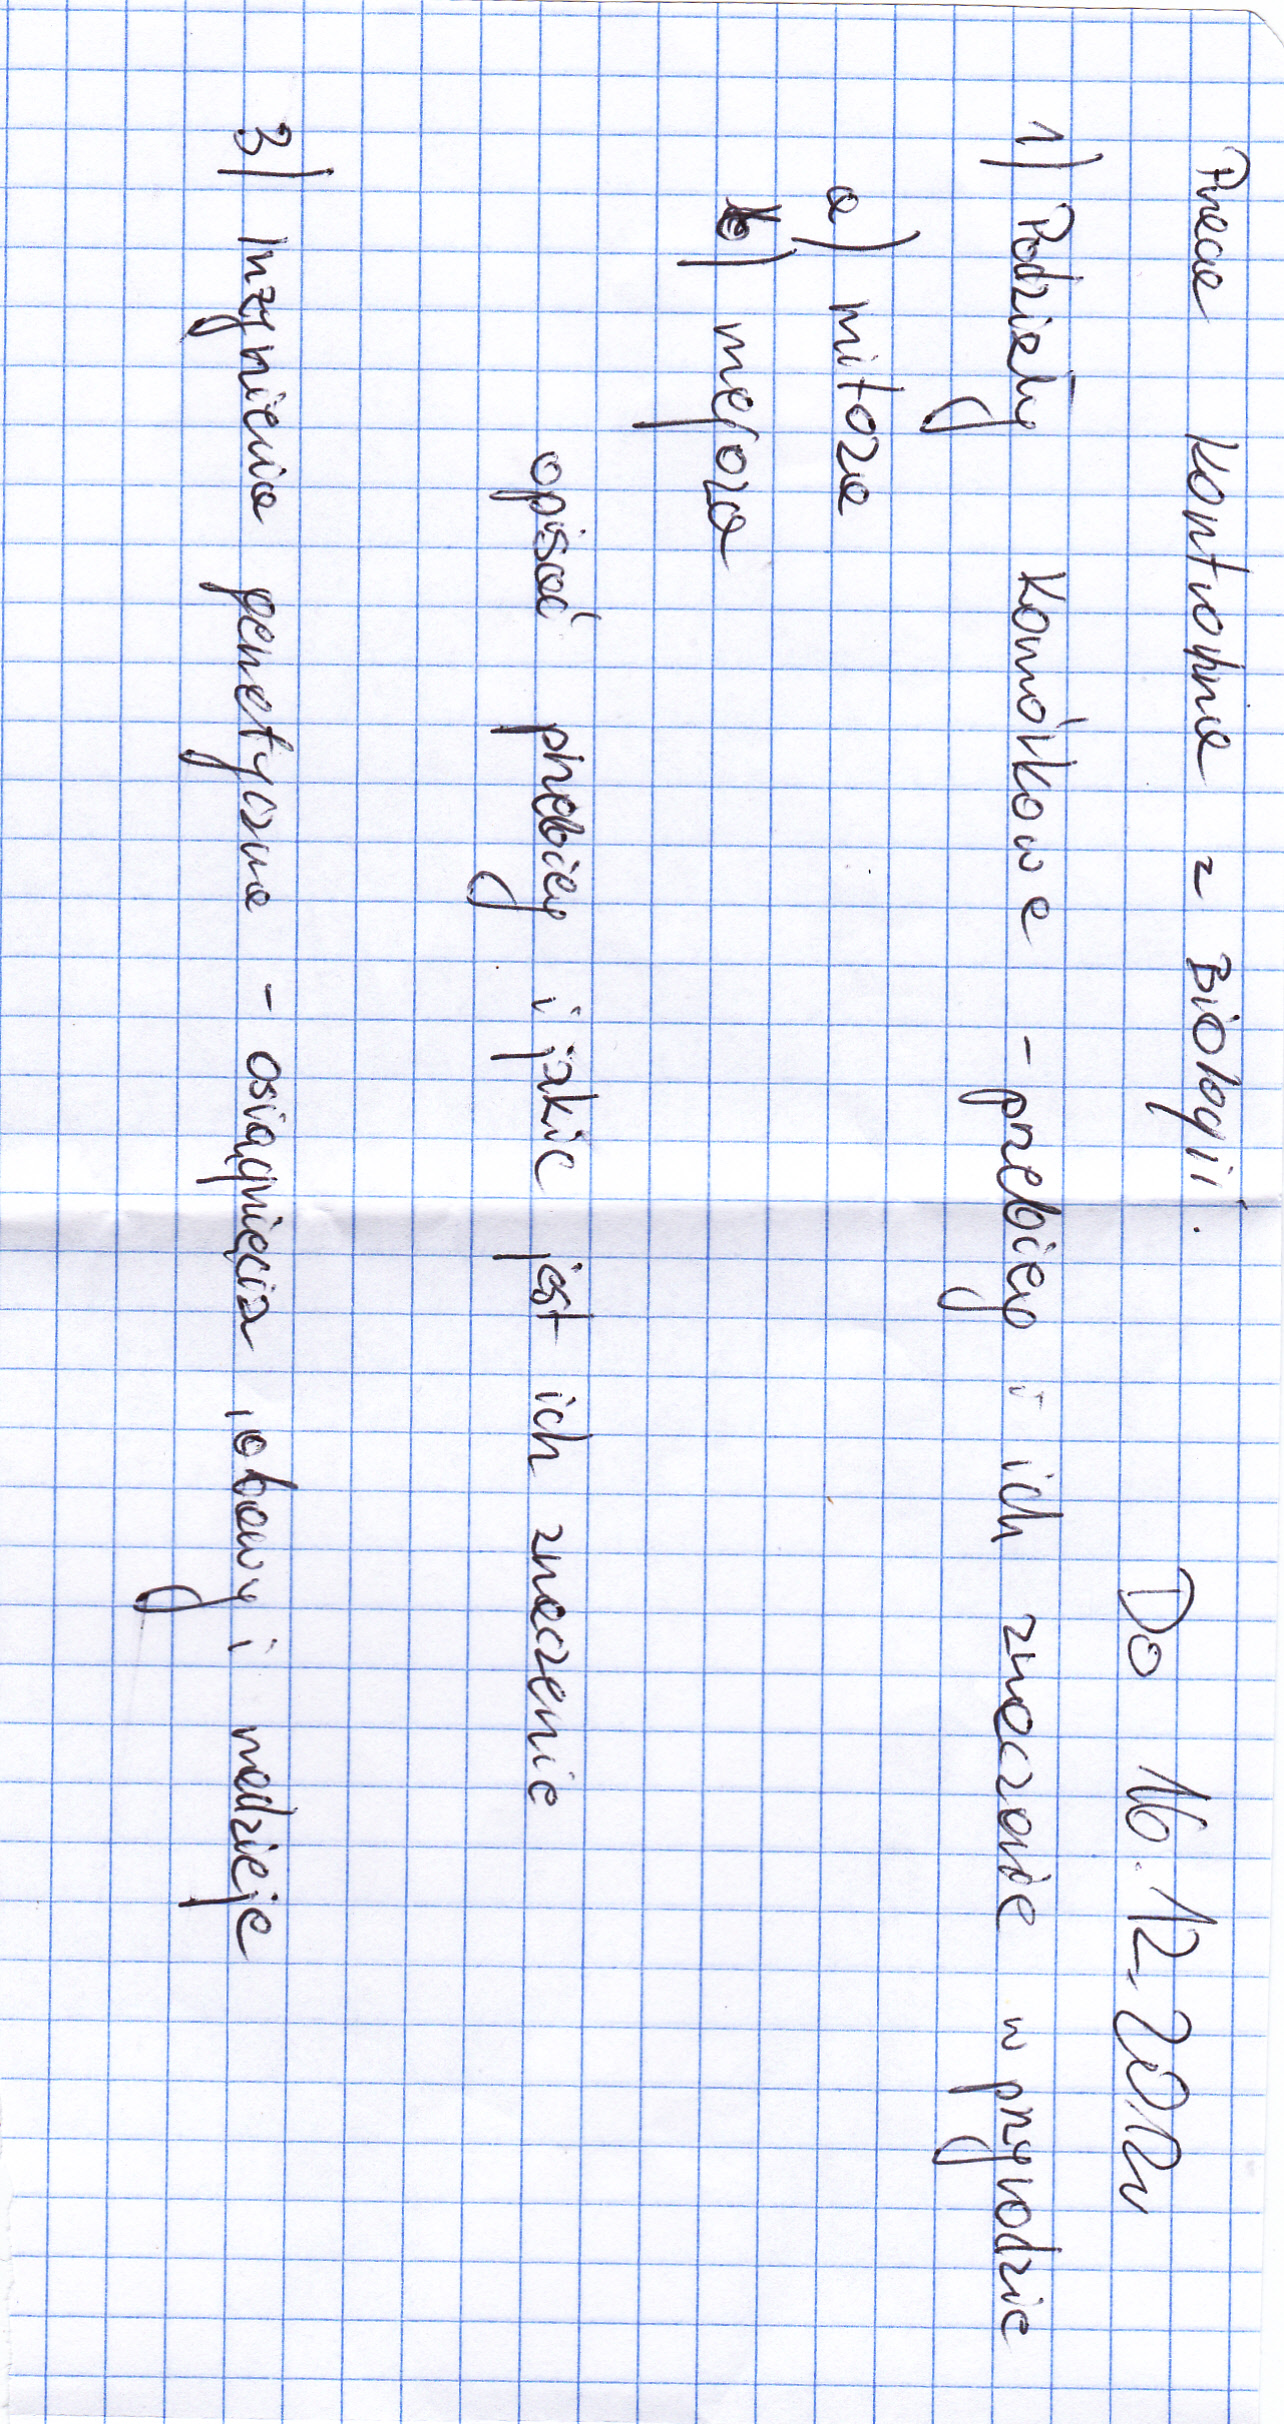 Praca kontrolna z Biologii.
Do 16.12.2012r
1) Podziały komórkowe - przebieg i ich znaczenie w przyrodzie
a) mitoza
b) mejoza
opisać przebieg i jakie jest ich znaczenie
3) Inzynieria genetyczna - osiągnięcia, obawy i nadzieje